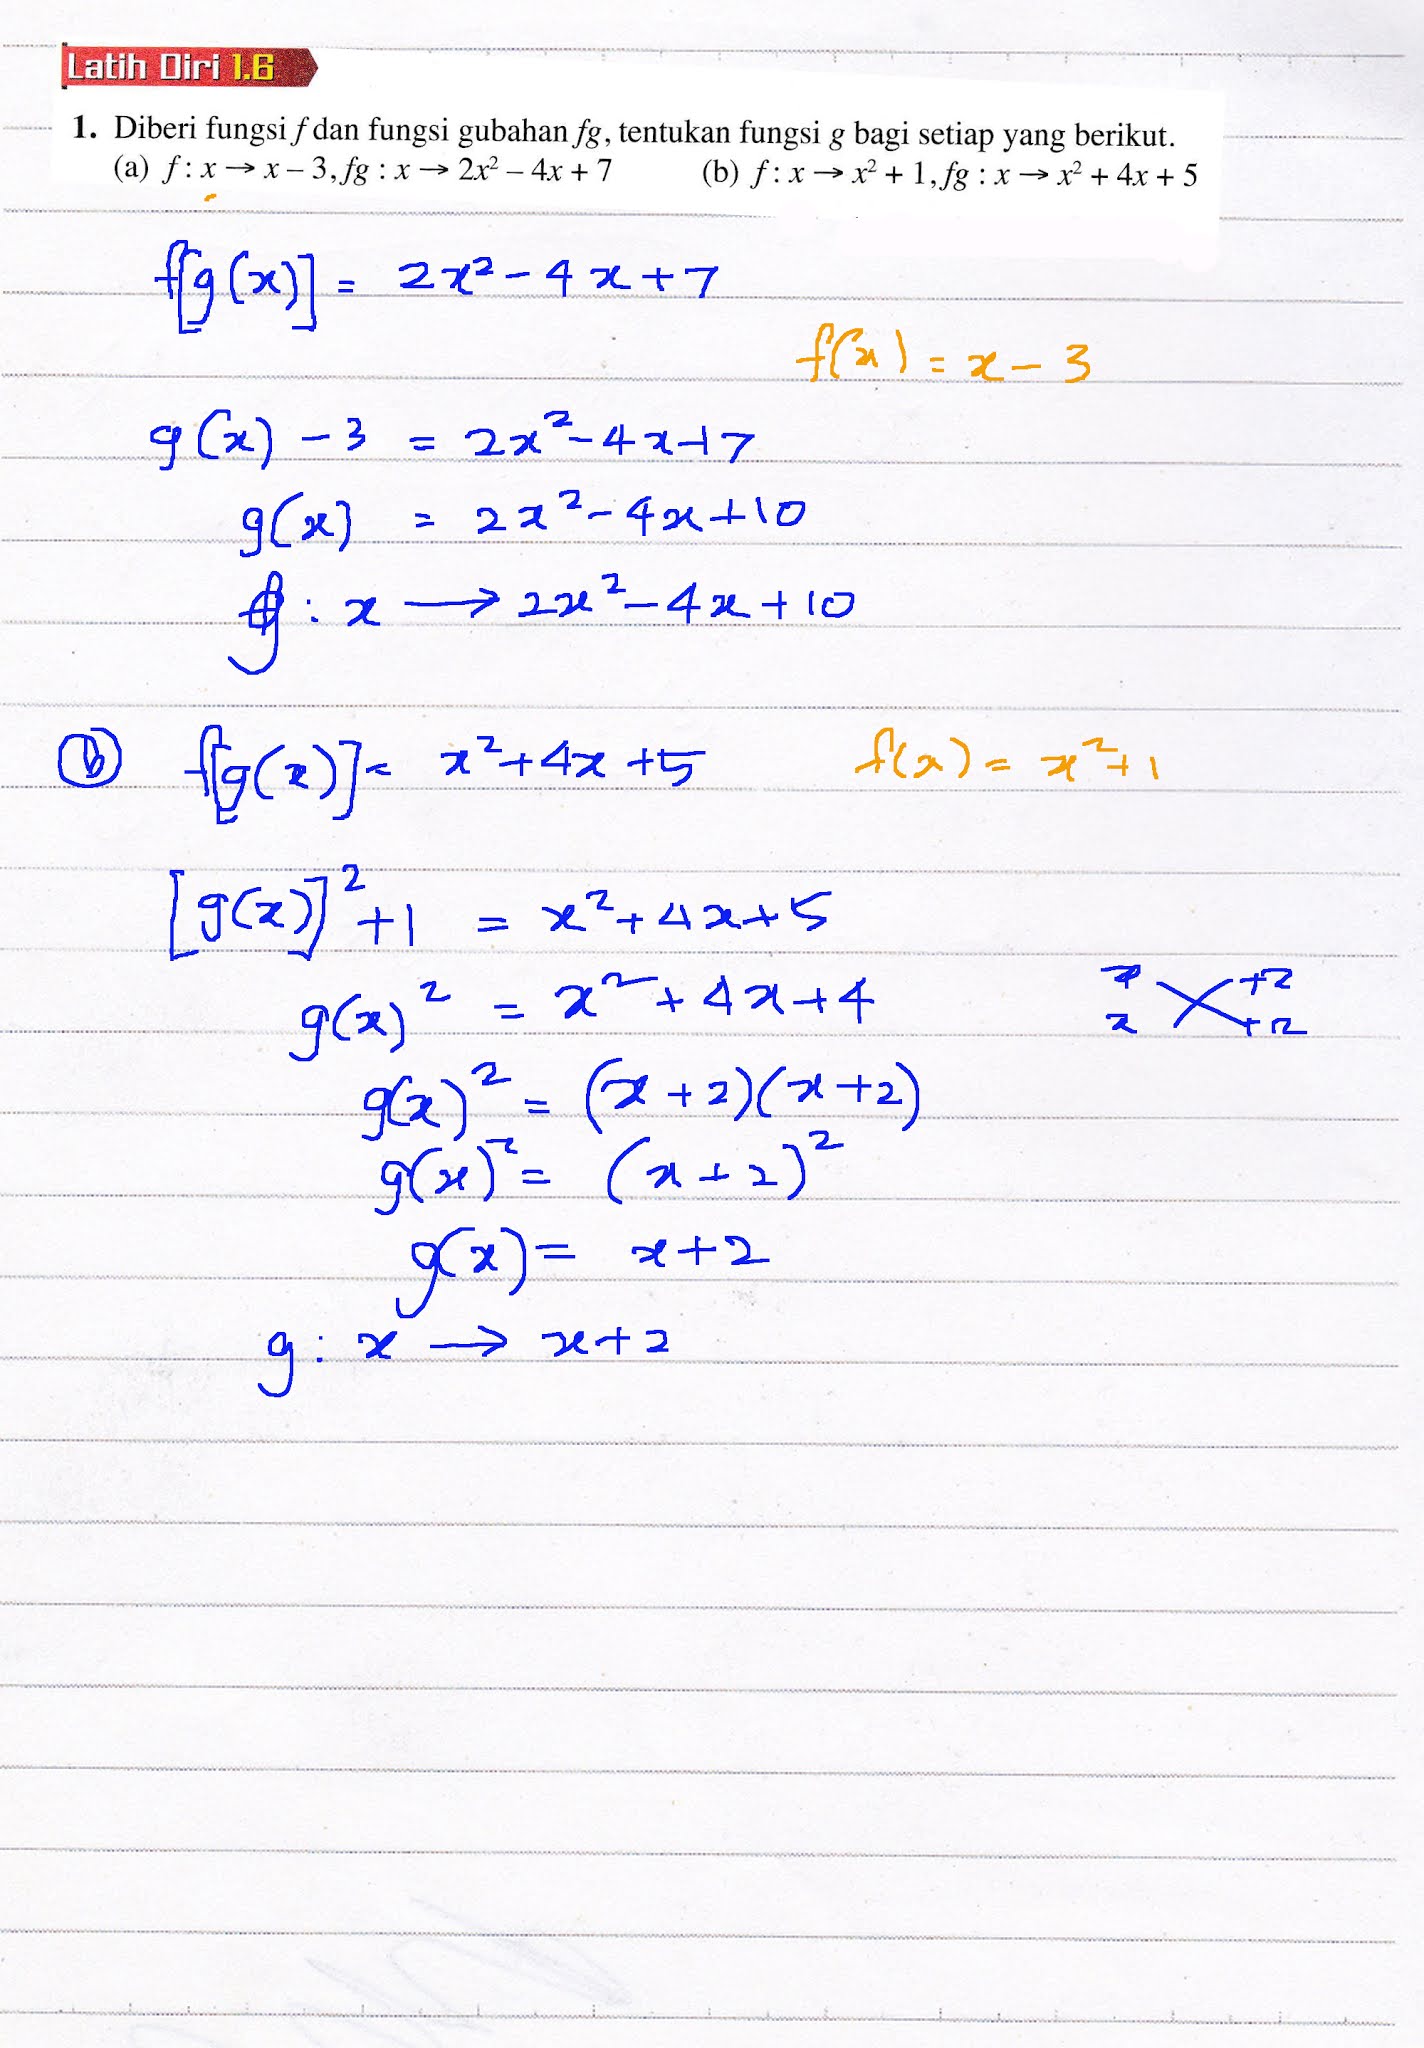 Latih Diri 1.6
1. Diberi fungsi f dan fungsi gubahan fg, tentukan fungsi g bagi setiap yang berikut.
(a) f : x → x – 3, fg : x → 2x² – 4x + 7 (b) f : x → x² + 1, fg : x → x² + 4x + 5
f[g(x)] = 2x² - 4x + 7
f(x) = x - 3
g(x) - 3 = 2x² - 4x + 7
g(x) = 2x² - 4x + 10
g : x → 2x² - 4x + 10
(b) f[g(x)] = x² + 4x + 5 f(x) = x² + 1
[g(x)]² + 1 = x² + 4x + 5
g(x)² = x² + 4x + 4
x +2
x +2
g(x)² = (x + 2)(x + 2)
g(x)² = (x + 2)²
g(x) = x + 2
g : x → x + 2